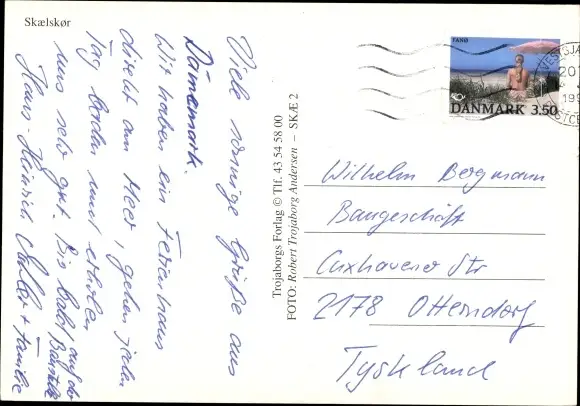 Skælskør
Viele sonnige Grüße aus
Dänemark.
Wir haben ein Ferienhaus
direkt am Meer, gehen jeden
Tag baden und erholen
uns sehr gut. Bis bald auf der
Baustelle
Hans-Heinrich + Familie
Trojaborgs Forlag © Tlf. 43 54 58 00
FOTO: Robert Trojaborg Andersen – SKÆ 2
FANØ
DANMARK 3.50
VESTSJÆ
20
199
Wilhelm Bergmann
Baugeschäft
Cuxhavener Str
2178 Otterndorf
Tyskland